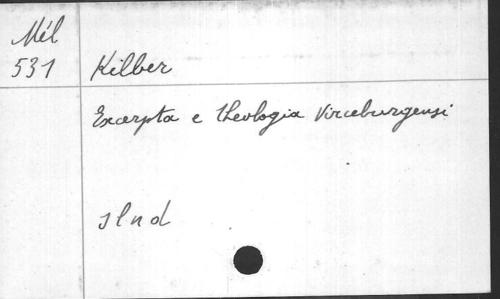 Mél
531
Kilber
Excerpta e theologia Virceburgensi
s l n d